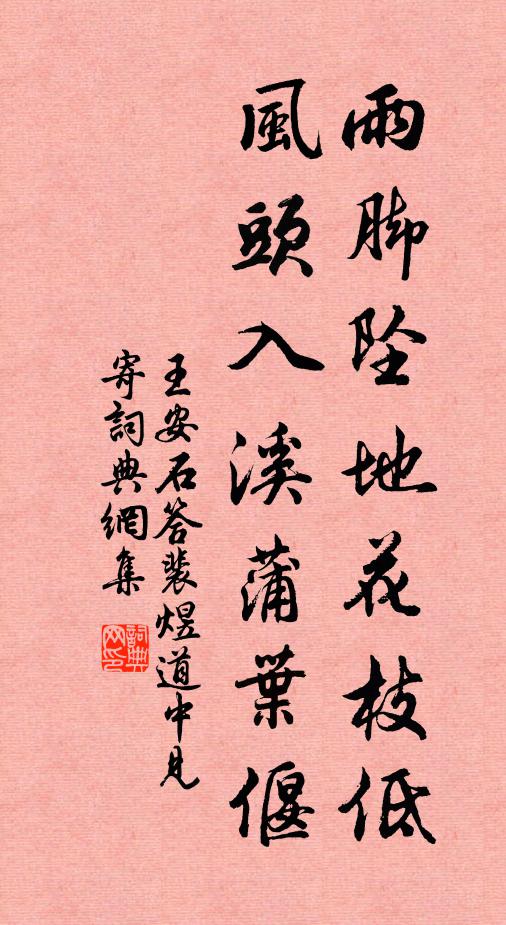 雨脚墜地花枝低
風頭入溪蒲葉偃
王安石答裴煜道中見
寄詞典網集
詞典
网印